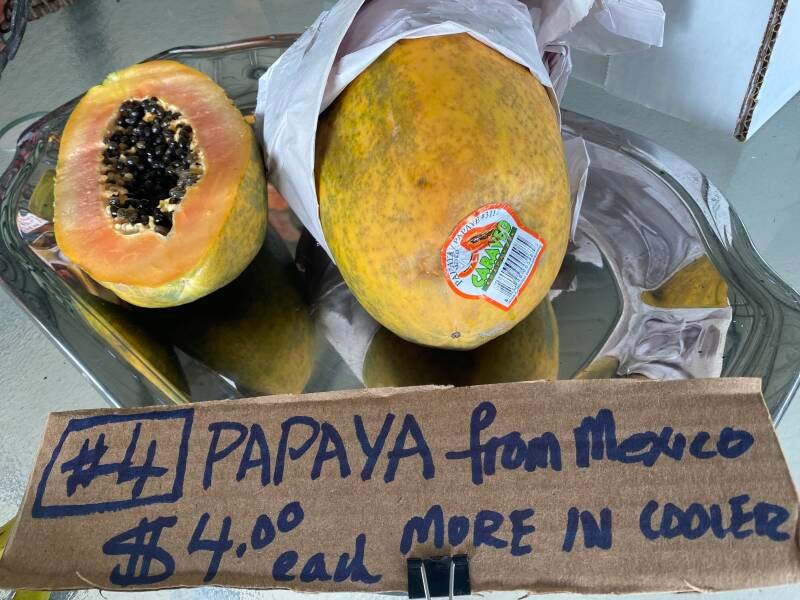 PAPAYA / PAPAYE #3111
CARAVEO
#4 PAPAYA from Mexico
$4.00 each MORE IN COOLER